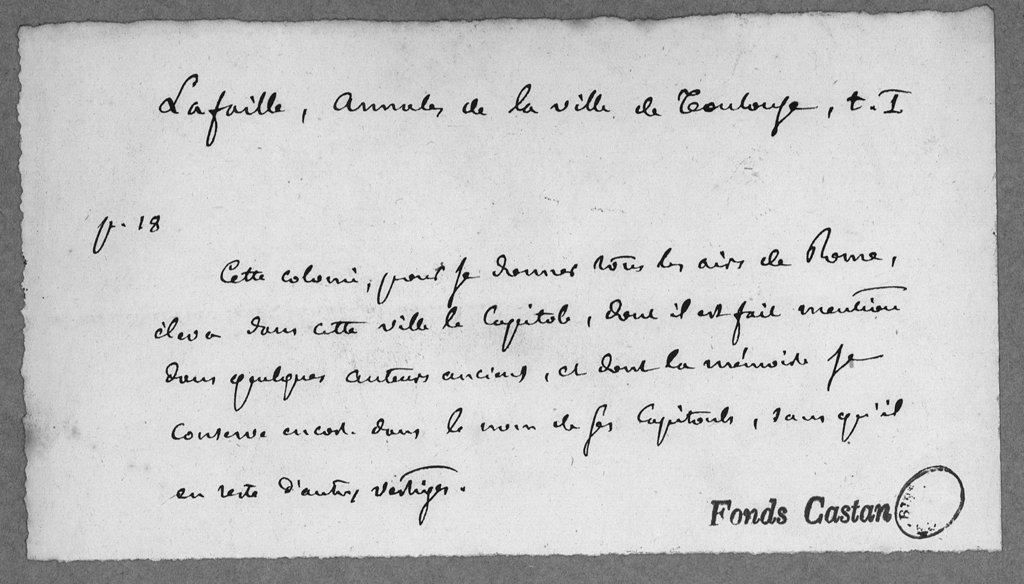 Lafaille, Annales de la ville de Toulouse, t. I
p. 18
Cette colonie, pour se donner tous les airs de Rome,
éleva dans cette ville le Capitole, dont il est fait mention
dans quelques auteurs anciens, et dont la mémoire se
conserve encore dans le nom de ses Capitouls, sans qu'il
en reste d'autres vestiges.
Fonds Castan